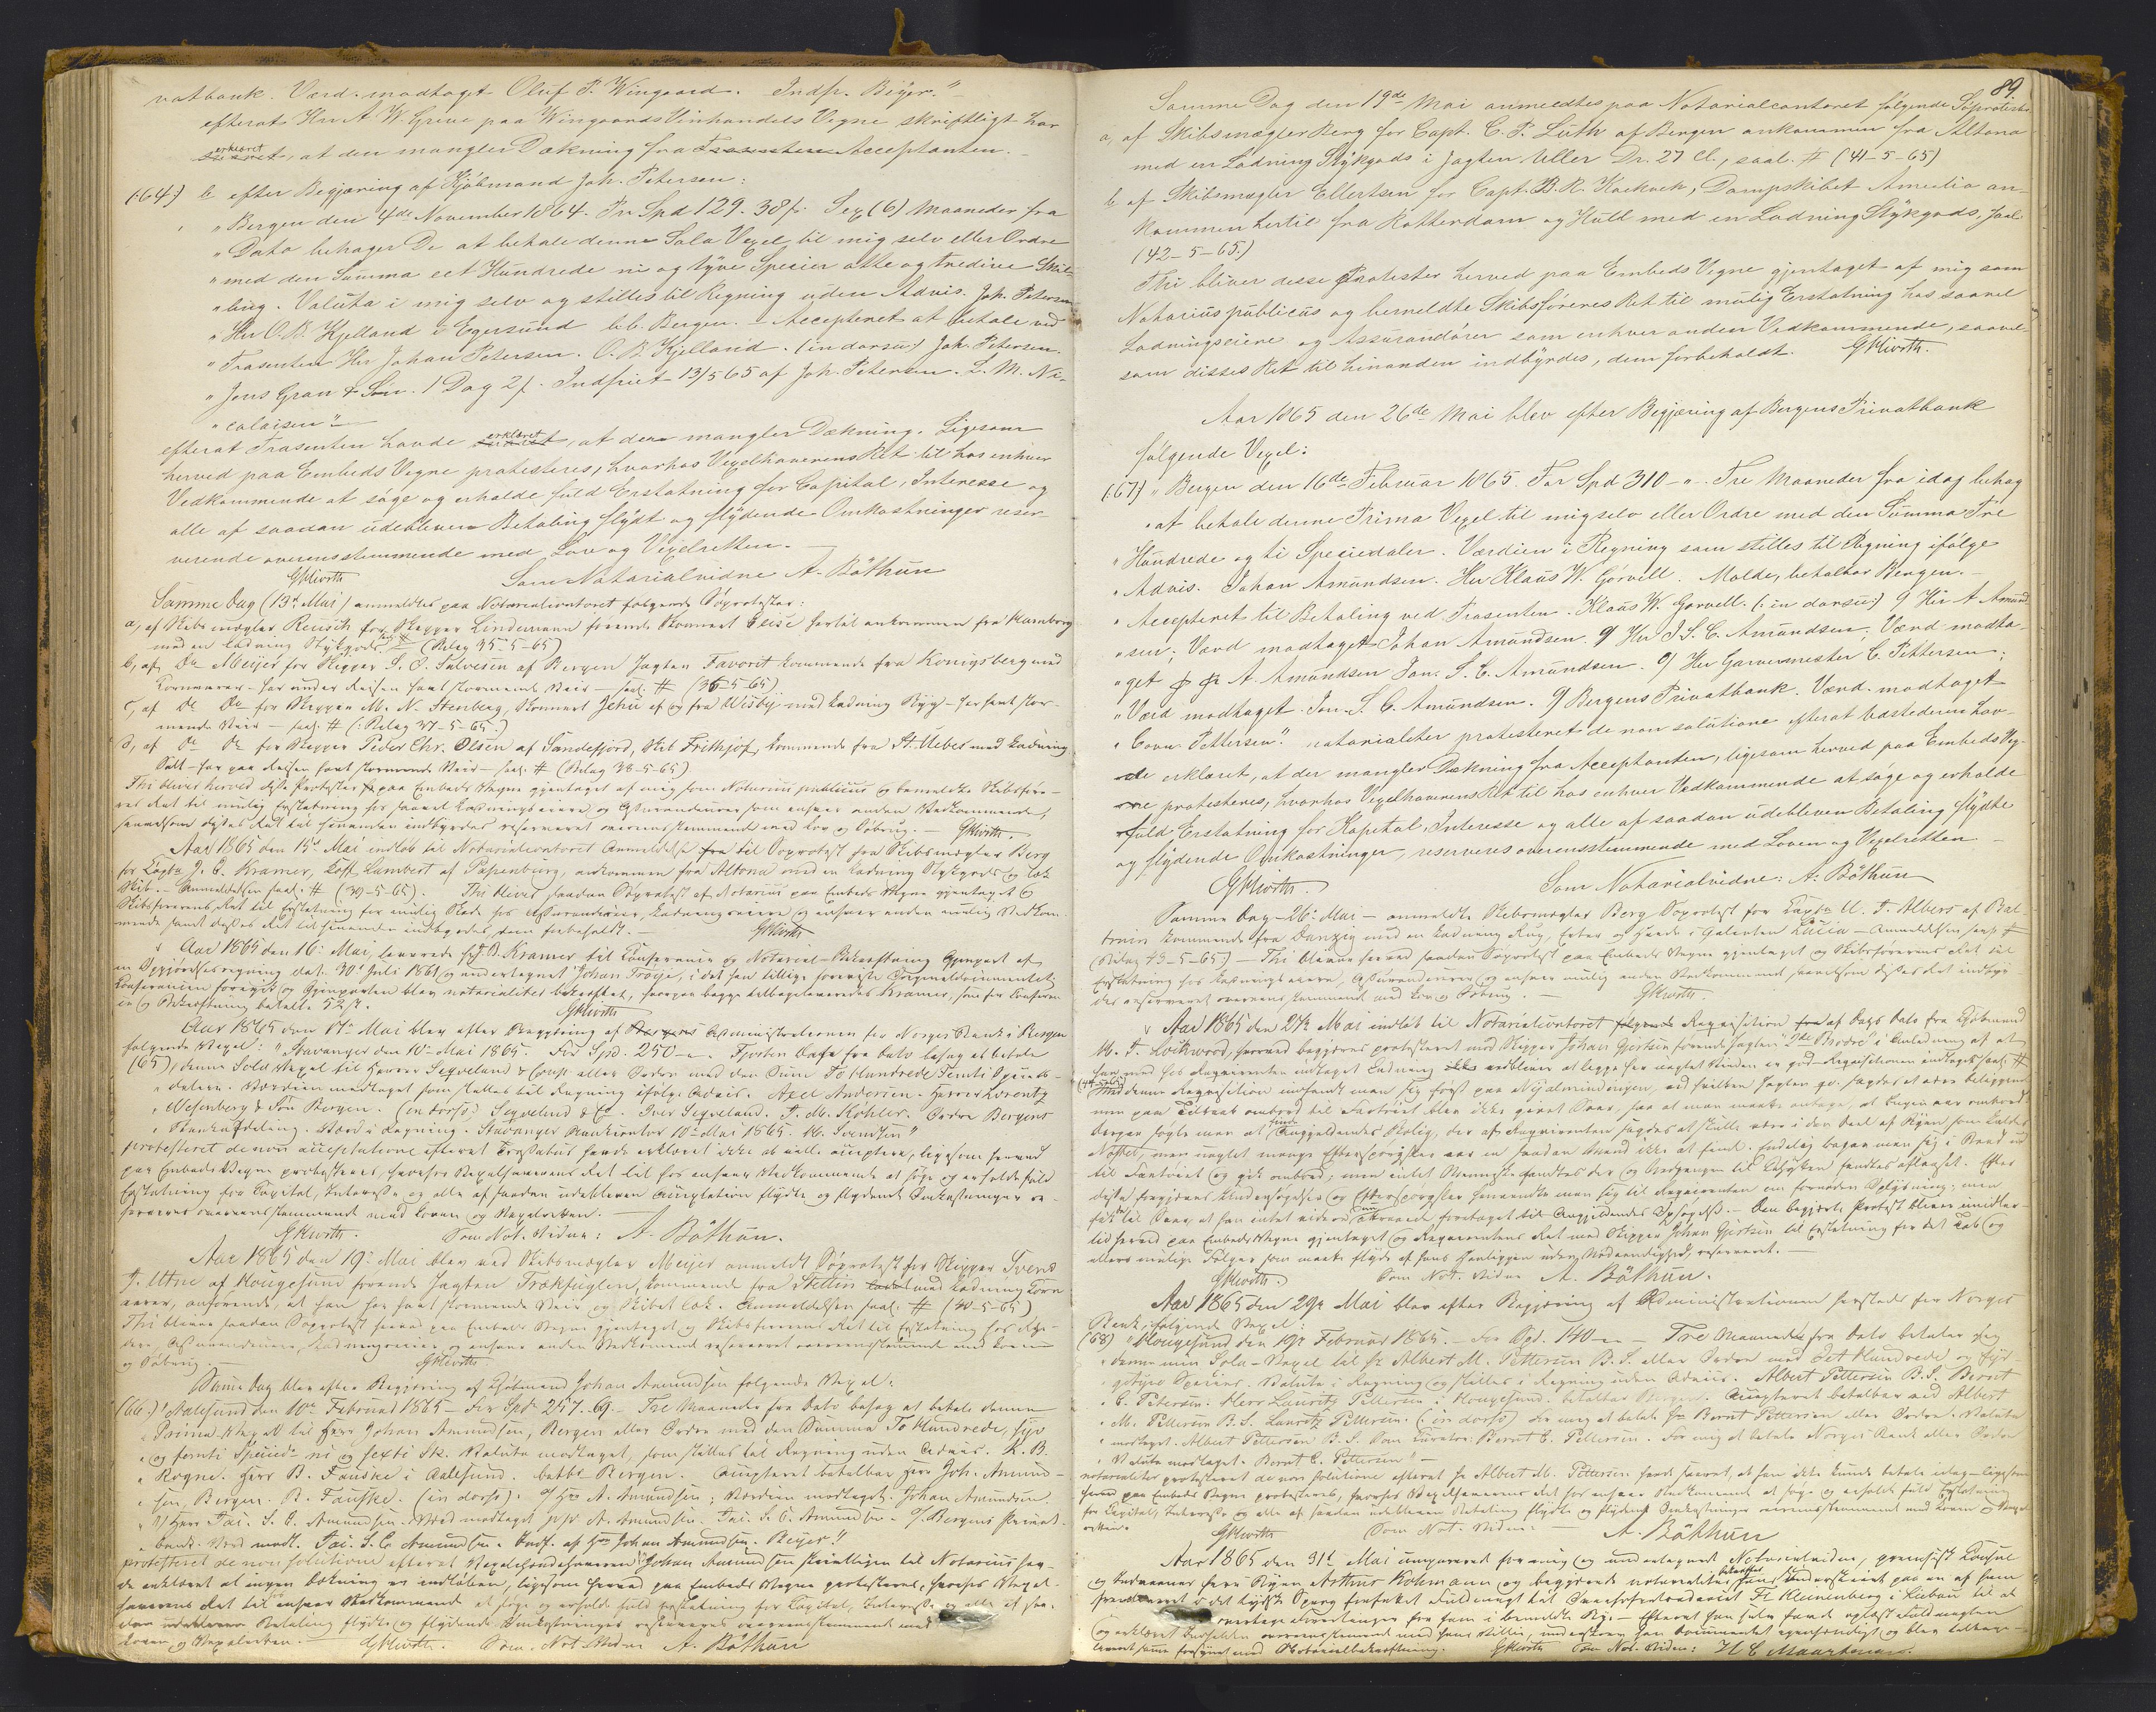 vatbank. Værd. modtaget Oluf P. Wingaard. Indfr. Beyer."
efterat Hr A. W. Greve paa Wingaards Vinhandels Vegne skriftligt har
erklæret, at den mangler Dækning fra Trassenten Acceptanten.
(:64:) b efter Begjæring af Kjøbmand Joh. Petersen:
"Bergen den 4de November 1864. Pr Spd 129. 38 ß. Sex (6) Maaneder fra
"Dato behager De at betale denne Sola Vexel til mig selv eller Ordre
"med den Summa eet Hundrede ni og tyve Specier otte og tredive Skil-
"ling. Valuta i mig selv og stilles til Regning uden Advis. Joh. Petersen
"Hr O. B. Kjelland i Egersund bet. Bergen. – Accepteret at betale ved
"Trasenten Hr Johan Petersen. O. B. Kjelland. (in dorso:) Joh. Petersen.
"Jens Gran & Søn. 1 Dag 2 ß. Indfriet 13/5 65 af Joh. Petersen. L. M. Ni-
"colaisen"
efterat Trasenten havde erklæret, at der mangler Dækning. Ligesom
herved paa Embeds Vegne protesteres, hvorhos Vexelhaverens Ret til hos enhver
Vedkommende at søge og erholde fuld Erstatning for Capital, Interesse og
alle af saadan udebleven Betaling flydt og flydende Omkostninger reser-
verende overensstemmende med Lov og Vexelretten.
GHiorth Som Notarialvidne A. Bøthun
Samme Dag (13de Mai) anmeldtes paa Notarialcontoret følgende Søprotester:
a, af Skibsmægler Reusch for Skipper Lindemann førende Skonnert Elise hertil ankommen fra Hamborg
med en Ladning Stykgods (Bilag 35-5-65)
b, af Do Meijer for Skipper S. O. Salvesen af Bergen Jagten Favorit kommende fra Königsberg med
Kornvarer – har under Reisen havt stormende Veir – saal. # (36-5-65)
c, af Do Do for Skipper M. N. Stenberg, Skonnert Jehu af og fra Wisby med Ladning Byg – har havt stor-
mende Veir – saal. # (: Bilag 37-5-65:)
d, af Do Do for Skipper Peder Chr. Olsen af Sandefjord, Skib Frithjof, kommende fra St. Uebes med Ladning
Salt – har paa Reisen havt stormende Veir – saal. # (Bilag 38-5-65)
Thi bliver herved disse Protester paa Embeds Vegne gjentaget af mig som Notarius publicus og bemeldte Skibsføre-
res Ret til mulig Erstatning hos saavel Ladningseiere og Assurandører som enhver anden Vedkommende,
saavelsom disses Ret til hinanden indbyrdes reserveret overensstemmende med Lov og Søbrug. – GHiorth.
Aar 1865 den 15de Mai indløb til Notarialcontoret Anmeldelse fra til Søprotest fra Skibsmægler Berg
for Captn J. C. Kramer, Koff Lambert af Papenburg, ankommen fra Altona med en Ladning Stykgods og læk
Skib. – Anmeldelsen saal. # (39-5-65). Thi bliver saadan Søprotest af Notarius paa Embeds Vegne gjentaget og
Skibsførerens Ret til Erstatning for mulig Skade hos Assurandører, Ladningseiere og enhver anden mulig Vedkom-
mende samt disses Ret til hinanden indbyrdes, dem forbeholdt. GHiorth
Aar 1865 den 16de Mai, leverede Hr J. B. Kramer til Conferance og Notarial-Bekræftning Gjenpart af
en Opgjørelsesregning dat. 30te Juli 1861 og undertegnet Johan Trøye, idet han tillige foreviste Originaldocumentet.
Conferancen foregik og Gjenparten blev notarialiter bekræftet, hvorpaa begge tilbageleveredes Kramer, som for Conferan-
ce og Bekræftning betalte 52 ß.
GHiorth
Aar 1865 den 17de Mai blev efter Begjæring af Bergens Administrationen for Norges Bank i Bergen
følgende Vexel: "Stavanger den 10de Mai 1865. For Spd. 250 – ". Fjorten Dage fra Dato behag at betale
(65) "denne Sola Vexel til Herrer Segveland & Comp eller Ordre med den Sum To Hundrede Femti Specie-
"dalere. Værdien modtaget som stilles til Regning ifølge Advis. Axel Andersen. Herrer Lorentz
"Wesenberg & Søn Bergen. (in dorso:) Segveland & Co. Iver Segveland. T. M. Köhler. Ordre Bergens
"Bankafdeling. Værd i Regning. Stavanger Bankcontor 10de Mai 1865. M. Svendsen"
protesteret de non acceptatione efterat Trassatus havde erklæret ikke at ville acceptere, ligesom herved
paa Embeds Vegne protesteres, hvorhos Vexelhaverens Ret til hos enhver Vedkommende at søge og erholde fuld
Erstatning for Capital, Interesse og alle af saadan udebleven Acceptation flydte og flydende Omkostninger re-
serveres overensstemmende med Loven og Vexelretten.
GHiorth. Som Not. Vidne: A. Bøthun.
Aar 1865 den 19de Mai blev ved Skibsmægler Meijer anmeldt Søprotest for Skipper Svend
T. Utne af Hougesund førende Jagten Trækfuglen, kommende fra Stettin med Ladning Korn-
varer, anførende, at han har havt stormende Veir og Skibet læk. Anmeldelsen saal. # (40-5-65)
Thi bliver saadan Søprotest herved paa Embeds Vegne gjentaget og Skibsførerens Ret til Erstatning hos Rhe-
dere, Assurandører, Ladningseiere og enhver anden Vedkommende reserveret overensstemmende med Loven
og Søbrug. GHiorth.
Samme Dag blev efter Begjæring af Kjøbmand Johan Amundsen følgende Vexel:
(66.) "Aalesund den 10de Februar 1865 – For Spd 257. 69. – Tre Maaneder fra Dato behag at betale denne
"Prima Vexel til Herr Johan Amundsen, Bergen eller Ordre med den Summa To Hundrede, syv
"og femti Specied. ni og sexti Sk. Valuta modtaget, som stilles til Regning uden Advis. K. B.
"Rogne. Herr B. Fauske i Aalesund. betbr Bergen. Accepteret betalbar Herr Joh. Amund-
"sen, Bergen. B. Fauske. (in dorso). O/ Hr A. Amundsen; Værdien modtaget. Johan Amundsen.
"O/ Herr Jac. S. C. Amundsen. Værd modtaget A. Amundsen. Jac. S. C. Amundsen. O/ Bergens Privat-
"bank. Værd modt. Jac. S. C. Amundsen. Indfr. af Hr Johan Amundsen. Beyer."
protesteret de non solutione efterat Vexelihændehaveren Johan Amundsen skriftligen til Notarius hav-
de erklæret at ingen Dækning er indløben, ligesom herved paa Embeds Vegne protesteres, hvorhos Vexel-
haverens Ret til hos enhver Vedkommende at søge og erholde fuld Erstatning for Capital, Interesse og alle af saa-
dan udebleven Betaling flydte og flydende Omkostninger reserveres overensstemmende med
Loven og Vexelretten. GHiorth. Som Not. Vidne A. Bøthun
89.
Samme Dag den 19de Mai anmeldtes paa Notarialcontoret følgende Søprotester
a, af Skibsmægler Berg for Capt. C. P. Lüth af Bergen ankommen fra Altona
med en Ladning Stykgods i Jagten Uller Dr. 27 Cl., saal. # (41-5-65)
b af Skibsmægler Ellertsen for Capt. B. R. Kaekoek, Dampskibet Amelia an-
kommen hertil fra Rotterdam og Hull med en Ladning Stykgods, saal.
(42-5-65.)
Thi bliver disse Protester herved paa Embeds Vegne gjentaget af mig som
Notarius publicus og bemeldte Skibsføreres Ret til mulig Erstatning hos saavel
Ladningseiere og Assurandører som enhver anden Vedkommende, saavel-
som disses Ret til hinanden indbyrdes, dem forbeholdt. GHiorth.
Aar 1865 den 26de Mai blev efter Begjæring af Bergens Privatbank
følgende Vexel:
(:67:) "Bergen den 16de Februar 1865. For Spd 310 – ". Tre Maaneder fra idag behag
"at betale denne Prima Vexel til mig selv eller Ordre med den Summa Tre
"Hundrede og ti Speciedaler. Værdien i Regning som stilles til Regning ifølge
"Advis. Johan Amundsen. Herr Klaus W. Gørvell. Molde, betalbar Bergen. –
"Accepteret til Betaling ved Trasenten. Klaus W. Gørvell. (: in dorsu:) O/ Hr A. Amund-
"sen; Værd modtaget Johan Amundsen. O/ Hr J. S. C. Amundsen; Værd modta-
"get A. Amundsen Jan. S. C. Amundsen. O/ Herr Garvermester C. Pettersen;
"Værd modtaget. Jan. S. C. Amundsen. O/ Bergens Privatbank. Værd. modtaget
"Corn. Pettersen." notarialiter protesteret de non solutione efterat Vedstederen hav-
de erklæret, at der mangler Dækning fra Acceptanten, ligesom herved paa Embeds Veg-
ne protesteres, hvorhos Vexelhaverens Ret til hos enhver Vedkommende at søge og erholde
fuld Erstatning for Kapital, Interesse og alle af saadan udebleven Betaling flydte
og flydende Omkostninger, reserveres overensstemmende med Loven og Vexelretten
GHiorth. Som Notarialvidne: A. Bøthun
Samme Dag – 26de Mai – anmeldte Skibsmægler Berg Søprotest for Captn U. T. Albers af Bal-
trum kommende fra Danzig med en Ladning Rug, Erter og Hamp i Galeasen Lucia – Anmeldelsen saal. #
(Bilag 43-5-65) – Thi bliver herved saadan Søprotest paa Embeds Vegne gjentaget og Skibsførerens Ret til
Erstatning hos Ladningseiere, Assurandører og enhver mulig anden Vedkommende saavelsom disses Ret indbyr-
des reserveret overensstemmende med Lov og Søbrug. GHiorth.
Aar 1865 den 27de Mai indløb til Notarialcontoret følgende Requisition fra af Dags Dato fra Kjøbmand
M. T. Loihwood, hvorved begjæres protesteret mod Skipper Johan Gjertsen førende Jagten "De Brødre" i Anledning af at
han med hos Requirenten indtaget Ladning udebliver at ligge her uagtet Vinden er god – Requisitionen indtages saal. #
Med denne Requisition indfandt man sig først paa at Almindingen, ved hvilken Jagten gl. sagdes at være beliggende
men paa Tilraab ombord til Fartøiet blev ikke givet Svar, saa at man maatte antage, at Ingen var ombord.
Derpaa søgte man at finde Angjeldendes Bolig, der af Requirenten sagdes at skulle være i den Deel af Byen som kaldes
Nøstet, men uagtet mange Efterspørgsler var en saadan Mand ikke at finde. Endelig begav man sig i Baad ud
til Fartøiet og gik ombord; men intet Menneske fandtes der og Nedgangen til Kahytten fandtes aflaaset. Efter
disse forgjæves Undersøgelser og Efterspørgsler henvendte man sig til Requirenten om fornøden Oplysning; men
fik til Svar, at han intet videre havde foretaget til Angjeldendes Opsøgelse. – Den begjærte Protest bliver imidler-
tid herved paa Embeds Vegne gjentaget og Requirentens Ret mod Skipper Johan Gjertsen til Erstatning for det Tab og
allevs mulige Følger som maatte flyde af hans Henliggen uden Nødvendighed, reserveret.
GHiorth. Som Not. Vidne A. Bøthun.
Aar 1865 den 29de Mai blev efter Begjæring af Administrationen herstede for Norges
Bank, følgende Vexel:
(68) "Hougesund den 19de Februar 1865. – For Spd. 140 – " – Tre Maaneder fra Dato betaler Jeg
"denne min Sola-Vexel til Hr. Albert M. Pettersen B. S. eller Ordre med Eet Hundrede og fyr-
"getyve Specier. Valuta i Regning og stilles i Regning uden Advis. Albert Pettersen B. S. Bernt
"C. Petersen. Herr Lauritz Pettersen i Hougesund. betalbar Bergen. Accepteret betalbar ved Albert
"M. Pettersen B. S. Lauritz Pettersen. (in dorso) For mig at betale Hr Bernt Pettersen eller Ordre. Valuta
"modtaget. Albert Pettersen B. S. Som Curator: Bernt C. Pettersen. For mig at betale Norges Bank eller Ordre
"Valuta modtaget. Bernt C. Pettersen" –
notarialiter protesteret de non solutione efterat Hr Albert M. Pettersen havde svaret, at han ikke kunde betale idag – ligesom
herved paa Embeds Vegne protesteres, hvorhos Vexelhaverens Ret hos enhver Vedkommende at søge og erholde fuld Erstatning
for Capital, Interesse og alle af saadan udebleven Betaling flydte og flydende Omkostninger overensstemmende med Loven og Vexel-
retten. GHiorth Som Not. Vidne: A. Bøthun
Aar 1865 den 31te Mai comparerede for mig og undertegnede Notarialvidne, preussisk Consul
og Indvaaner her i Byen Arthur Kohmann og begjærede notarialiter bekræftet hans Underskrivt paa en af ham
i det tydske Sprog forfattet Fuldmagt til Fr. Kleinenberg i Libau til at
for ham i bemeldte By. – Efterat han selv havde oplæst Fuldmagten
og erklæret Indholdet overensstemmende med hans Villie, underskrev han Documentet egenhændigt og blev tilbage-
leveret samme forsynet med Notarialbekræftning. GHiorth Som Not. Vidne: H C Maartmann.